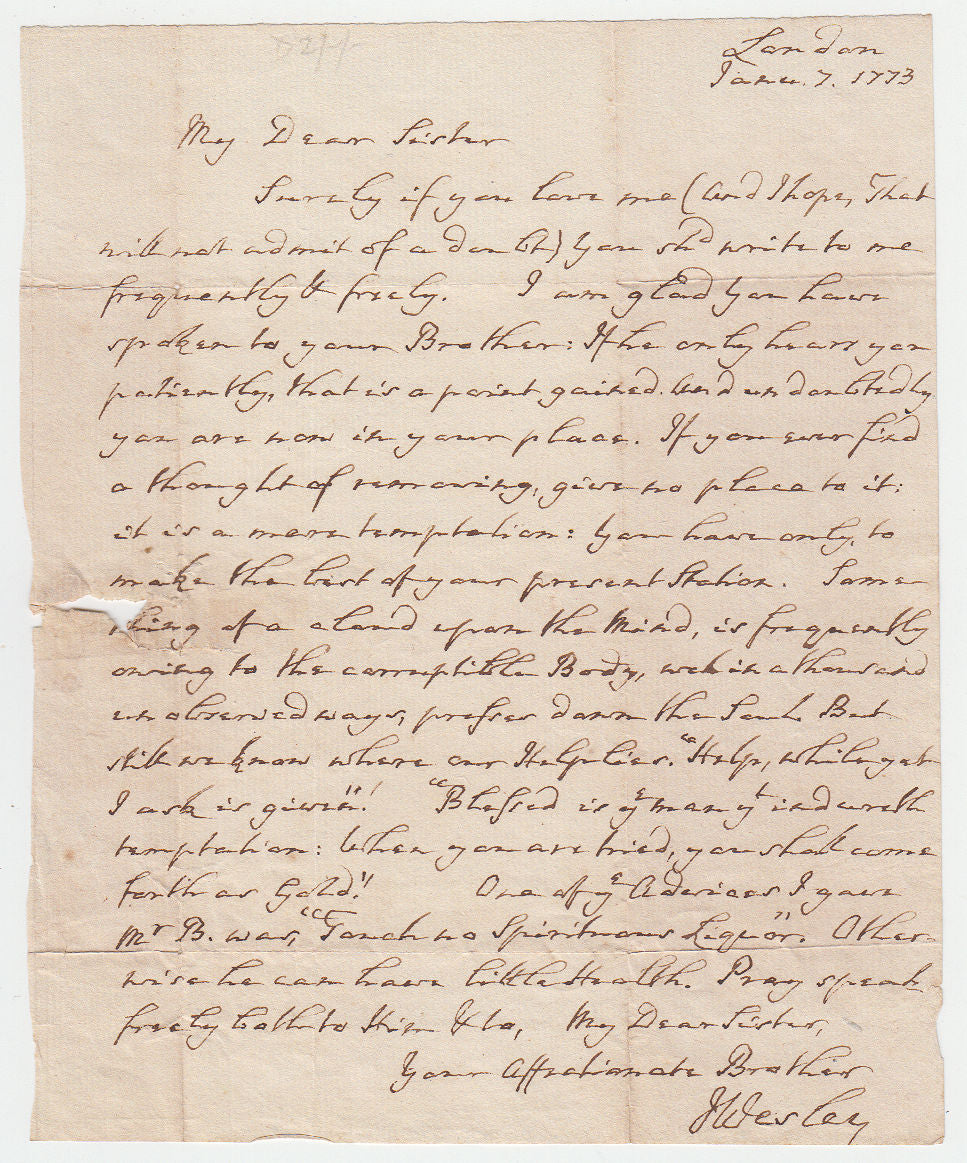 London
Janu. 7. 1773
My Dear Sister
Surely if you love me (and I hope, That
will not admit of a doubt) you shd write to me
frequently & freely. I am glad you have
spoken to your Brother: If he only hears you
patiently, that is a point gained. And undoubtedly
you are now in your place. If you ever find
a thought of removing, give no place to it:
it is a mere temptation: You have only, to
make the best of your present Station. Some
thing of a cloud upon the Mind, is frequently
owing to the corruptible Body, wch in a thousand
unobserved ways, presses down the Soul. But
still we know where our Help lies. "Help, while yet
I ask is given"! "Blessed is ye man yt indureth
temptation: When you are tried, you shall come
forth as Gold"! One of ye Advices I gave
Mr B. was, "Touch no Spirituous Liquor". Other-
wise he can have little Health. Pray speak
freely both to Him & to, My Dear Sister,
Your Affectionate Brother
JWesley